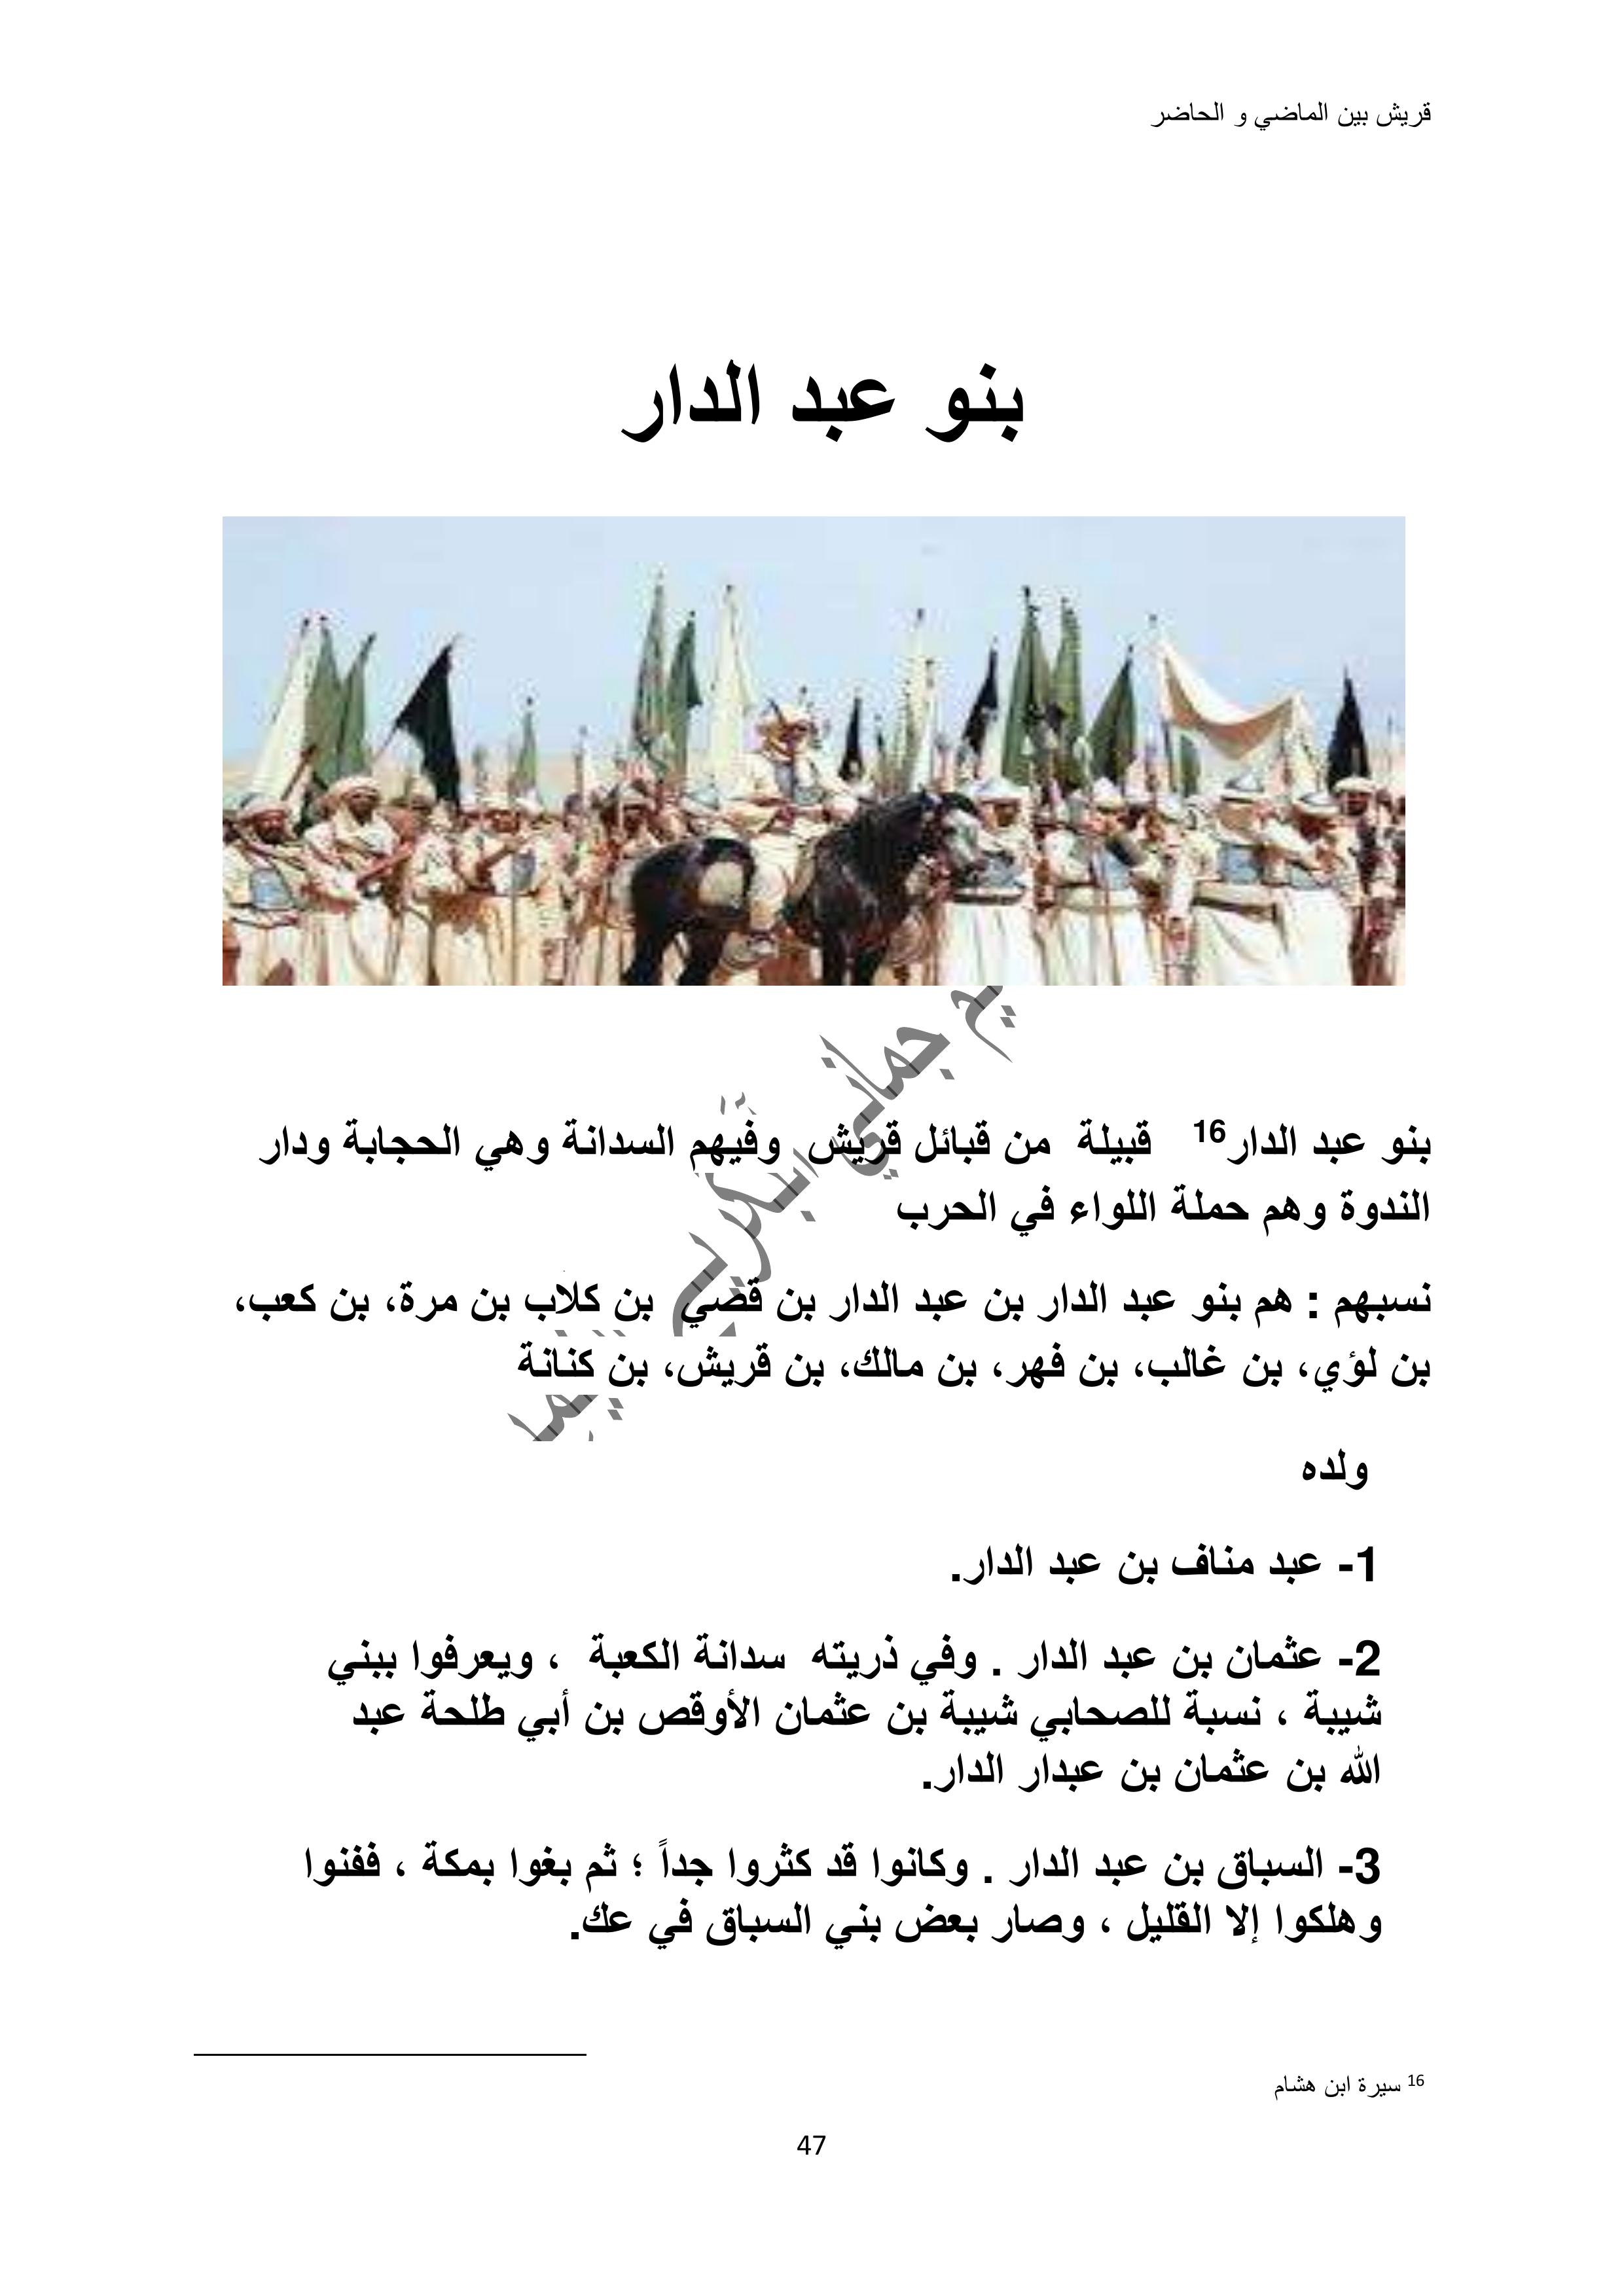 قريش بين الماضي و الحاضر
بنو عبد الدار
بنو عبد الدار16 قبيلة من قبائل قريش وفيهم السدانة وهي الحجابة ودار
الندوة وهم حملة اللواء في الحرب
نسبهم : هم بنو عبد الدار بن عبد الدار بن قصي بن كلاب بن مرة، بن كعب،
بن لؤي، بن غالب، بن فهر، بن مالك، بن قريش، بن كنانة
ولده
1- عبد مناف بن عبد الدار.
2- عثمان بن عبد الدار . وفي ذريته سدانة الكعبة ، ويعرفوا ببني
شيبة ، نسبة للصحابي شيبة بن عثمان الأوقص بن أبي طلحة عبد
الله بن عثمان بن عبدار الدار.
3- السباق بن عبد الدار . وكانوا قد كثروا جداً ؛ ثم بغوا بمكة ، ففنوا
وهلكوا إلا القليل ، وصار بعض بني السباق في عك.
16 سيرة ابن هشام
47